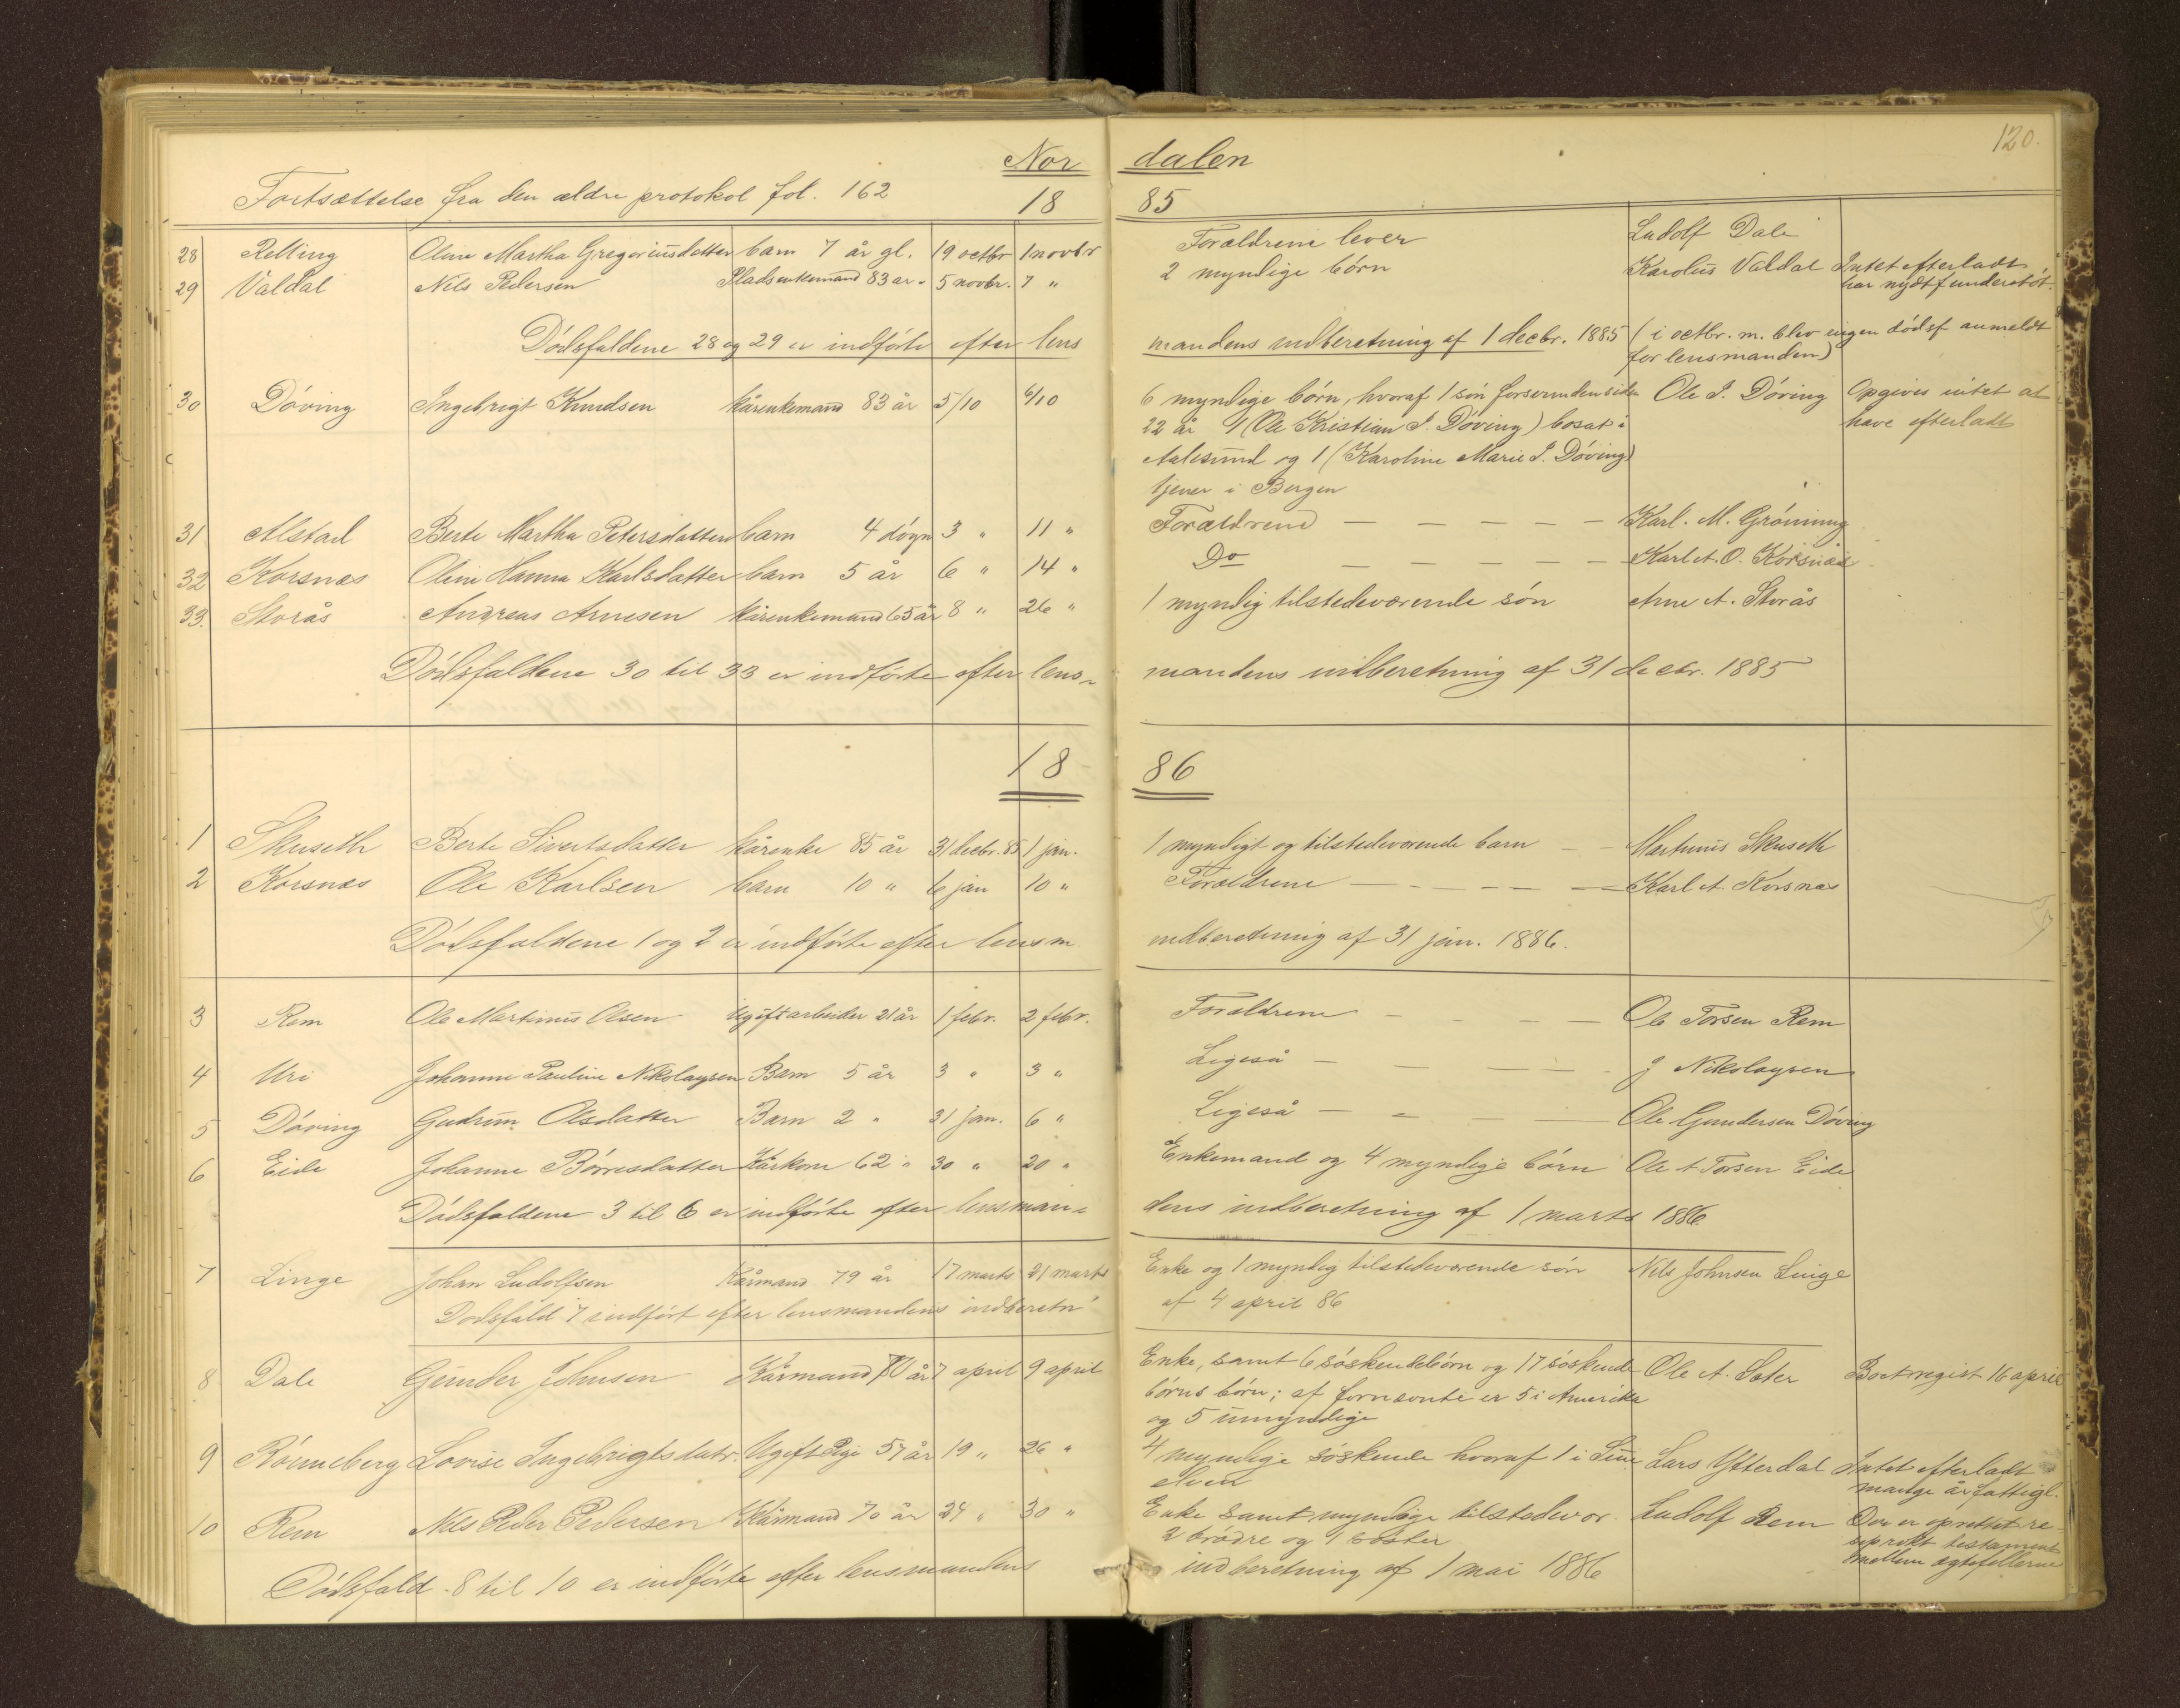 120.
Nor dalen
Fortsættelse fra den ældre protokol fol. 162 18 85
28 Relling Oline Martha Gregoriusdatter barn 7 år gl. 19 octbr 1 novbr Forældrene lever Ludolf Dale
29 Valdal Nils Pedersen Pladsenkemand 83 år 5 novbr. 7 " 2 myndige börn Karolus Valdal Intet efterladt
har nydt f understöt.
Dödsfaldene 28 og 29 er indförte efter lens mandens indberetning af 1 decbr. 1885 ( i octbr. m. blev ingen dödsf anmeldt
for lensmanden)
30 Döving Ingebrigt Knudsen kårenkemand 83 år 5/10 6/10 6 myndige börn, hvoraf 1 sön forsvunden siden Ole I. Döving Opgives intet at
22 år 1 (Ole Kristian I. Döving) bosat i have efterladt
Aalesund og 1 (Karoline Marie I. Döving)
tjener i Bergen
31 Alstad Berte Martha Petersdatter barn 4 dögn 3 " 11 " Forældrene — — — — — Karl. M. Gröning
32 Korsnæs Oline Hanna Karlsdatter barn 5 år 6 " 14 " Do — — — — — Karl A. O. Korsnæs
33. Storås Andreas Arnesen kårenkemand 65 år 8 " 26 " 1 myndig tilstedeværende sön Arne A. Storås
Dödsfaldene 30 til 33 er indförte efter lens- mandens indberetning af 31 decbr. 1885
18 86
1 Skuseth Berte Sivertsdatter kårenke 85 år 31 decbr. 85 1 jan. 1 myndigt og tilstedeværende barn — Martinus Skuseth
2 Korsnæs Ole Karlsen barn 10 " 6 jan 10 " Forældrene — — — — — Karl A. Korsnæs
Dödsfaldene 1 og 2 er indförte efter lensm indberetning af 31 jan. 1886.
3 Rem Ole Martinus Olsen Ugift arbeider 21 år 1 febr. 2 febr. Forældrene — — — — Ole Torsen Rem
4 Uri Johanne Pauline Nikolaysen Barn 5 år 3 " 3 " Ligeså — — — — J Nikolaysen
5 Döving Gudrun Olsdatter Barn 2 " 31 jan. 6 " Ligeså — — — Ole Gundersen Döving
6 Eide Johanne Börresdatter Kårkone 62 " 30 " 20 " Enkemand og 4 myndige börn Ole A Torsen Eide
Dödsfaldene 3 til 6 er indförte efter lensman- dens indberetning af 1 marts 1886.
7 Linge Johan Ludolfsen Kårmand 79 år 17 marts 21 marts Enke og 1 myndig tilstedeværende sön Nils Johnsen Linge
Dödsfald 7 indfört efter lensmandens indberetn af 4 april 86
8 Dale Gunder Johnsen Kårmand 70 år 7 april 9 april Enke, samt 6 söskendebörn og 17 söskende Ole A. Sæter Boet regist 16 april
börns börn; af fornævnte er 5 i Amerika
og 5 umyndige
9 Rönneberg Lovise Ingebrigtsdatr. Ugift Pige 57 år 19 " 26 " 4 myndige söskende hvoraf 1 i Lars Ytterdal Intet efterladt
mange år fattigl.
10 Rem Nils Peder Pedersen Kårmand 70 år 24 " 30 " Enke samt myndige tilstedevær. Ludolf Rem Der er oprettet re-
2 brödre og 1 söster ciprokt testament
mellem ægtefellerne
Dödsfald 8 til 10 er indförte efter lensmandens indberetning af 1 mai 1886